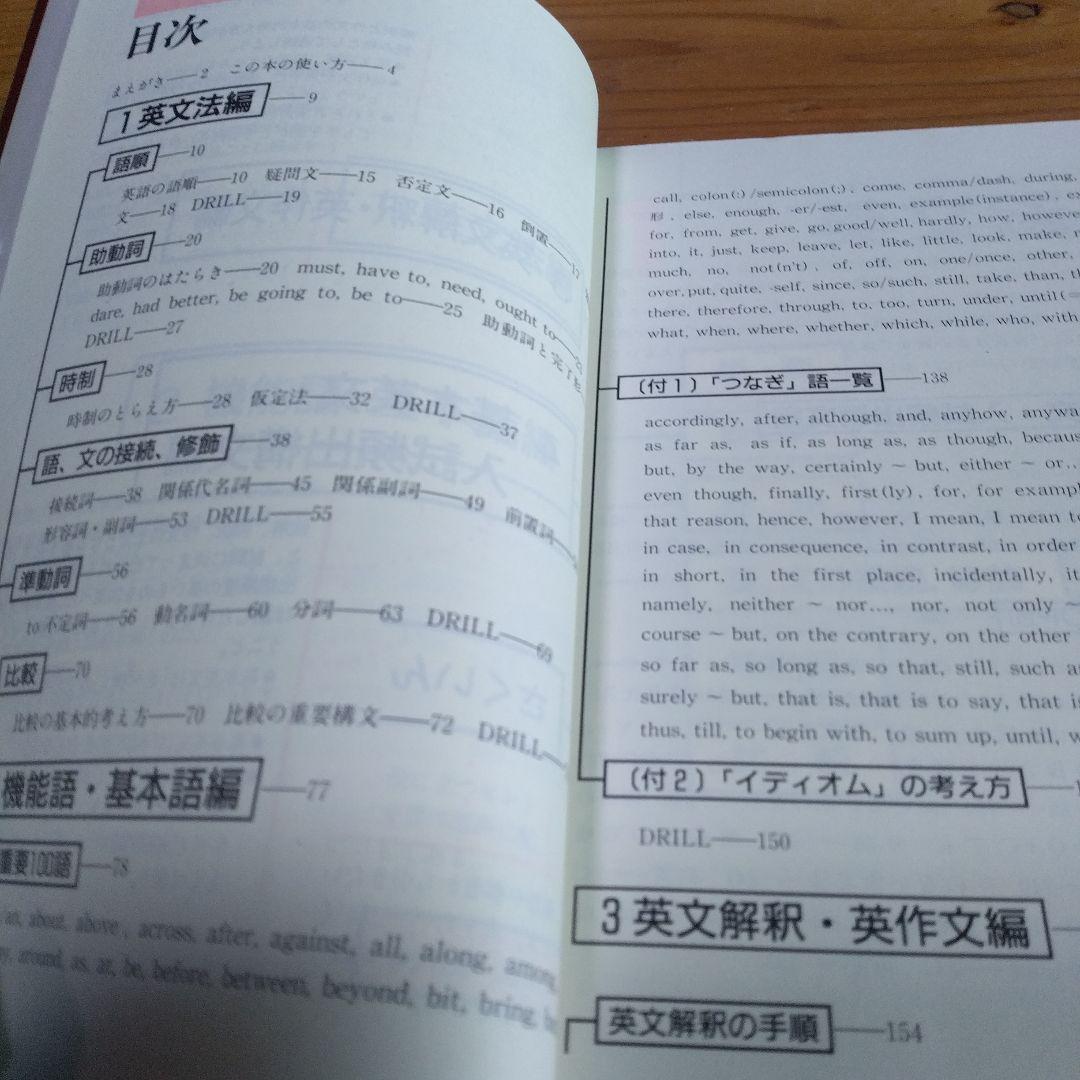 目次
まえがき——2 この本の使い方——4
1 英文法編——9
語順——10
英語の語順——10 疑問文——15 否定文——16 倒置——17
文——18 DRILL——19
助動詞——20
助動詞のはたらき——20 must, have to, need, ought to——
dare, had better, be going to, be to——25 助動詞と完了
DRILL——27
時制——28
時制のとらえ方——28 仮定法——32 DRILL——37
語、文の接続、修飾——38
接続詞——38 関係代名詞——45 関係副詞——49 前置詞——
形容詞・副詞——53 DRILL——55
準動詞——56
to 不定詞——56 動名詞——60 分詞——63 DRILL——69
比較——70
比較の基本的考え方——70 比較の重要構文——72 DRILL——
機能語・基本語編——77
重要100語——78
an, about, above, across, after, against, all, along, among,
around, as, at, be, before, between, beyond, bit, bring,
call, colon(:)/semicolon(;), come, comma/dash, during,
形, else, enough, -er/-est, even, example(instance),
for, from, get, give, go, good/well, hardly, how, however
into, it, just, keep, leave, let, like, little, look, make,
much, no, not(n't), of, off, on, one/once, other,
over, put, quite, -self, since, so/such, still, take, than,
there, therefore, through, to, too, turn, under, until(
what, when, where, whether, which, while, who, with
(付1)「つなぎ」語一覧——138
accordingly, after, although, and, anyhow,
as far as, as if, as long as, as though,
but, by the way, certainly ~ but, either ~ or...
even though, finally, first(ly), for, for
that reason, hence, however, I mean, I mean
in case, in consequence, in contrast, in order
in short, in the first place, incidentally,
namely, neither ~ nor..., nor, not only ~
course ~ but, on the contrary, on the other
so far as, so long as, so that, still, such
surely ~ but, that is, that is to say, that
thus, till, to begin with, to sum up, until,
(付2)「イディオム」の考え方——
DRILL——150
3 英文解釈・英作文編——
英文解釈の手順——154